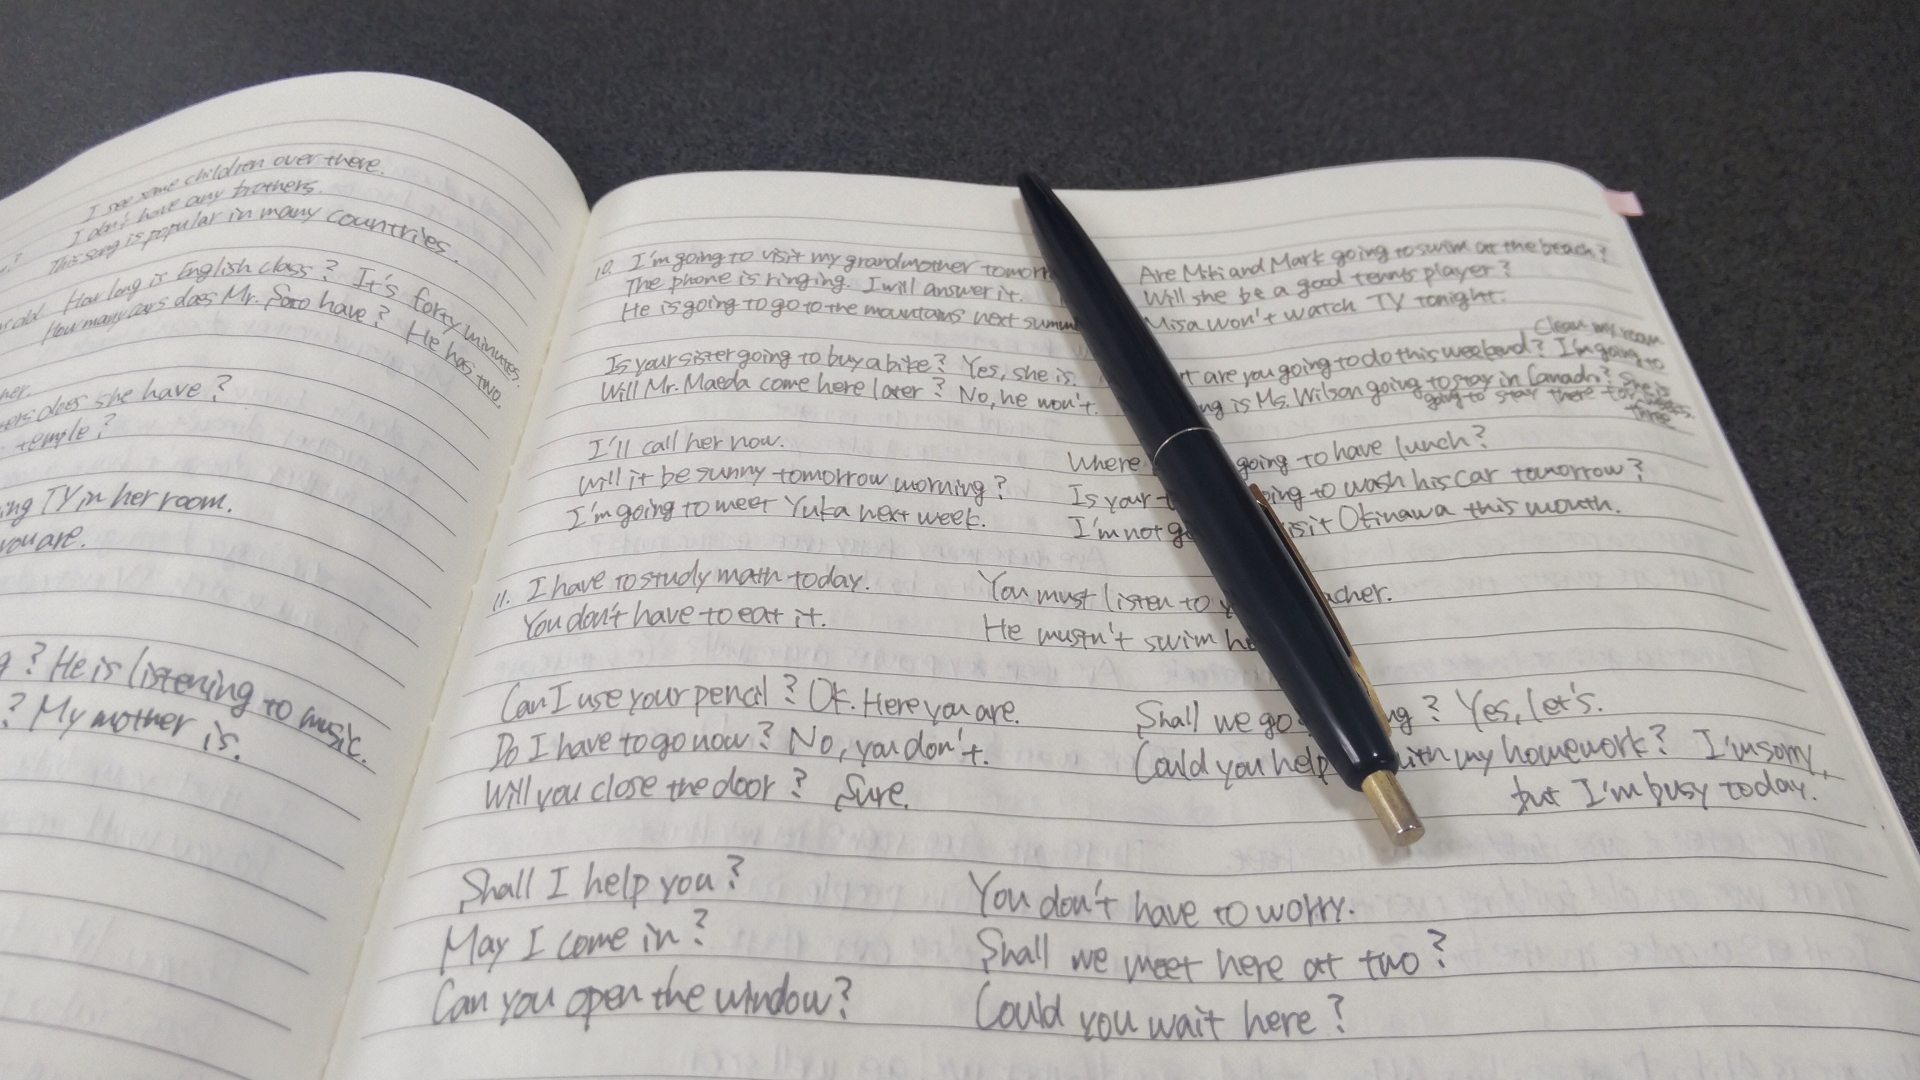 I see some children over there.
I don't have any brothers.
This song is popular in many countries.
old How long is English class? It's forty minutes.
How many cars does Mr. Sato have? He has two.
does she have?
temple?
TV in her room.
you are.
? He is listening to music.
? My mother is.
10. I'm going to visit my grandmother
The phone is ringing. I will answer it.
He is going to go to the mountains next
Is your sister going to buy a bike? Yes, she is.
Will Mr. Maeda come here later? No, he won't.
I'll call her now.
Will it be sunny tomorrow morning?
I'm going to meet Yuka next week.
Are Miki and Mark going to swim at the beach?
Will she be a good tennis player?
Misa won't watch TV tonight.
are you going to do this weekend? I'm going to
Clean my room
is Ms. Wilson going to stay in Canada? She is
going to stay there for
three
Where going to have lunch?
Is your going to wash his car tomorrow?
I'm not Okinawa this month.
11. I have to study math today.
You don't have to eat it.
You must listen to
He mustn't swim
Can I use your pencil? OK. Here you are.
Do I have to go now? No, you don't.
Will you close the door? Sure.
Shall we go ? Yes, let's.
Could you help with my homework? I'm sorry,
but I'm busy today.
Shall I help you?
May I come in?
Can you open the window?
You don't have to worry.
Shall we meet here at two?
Could you wait here?